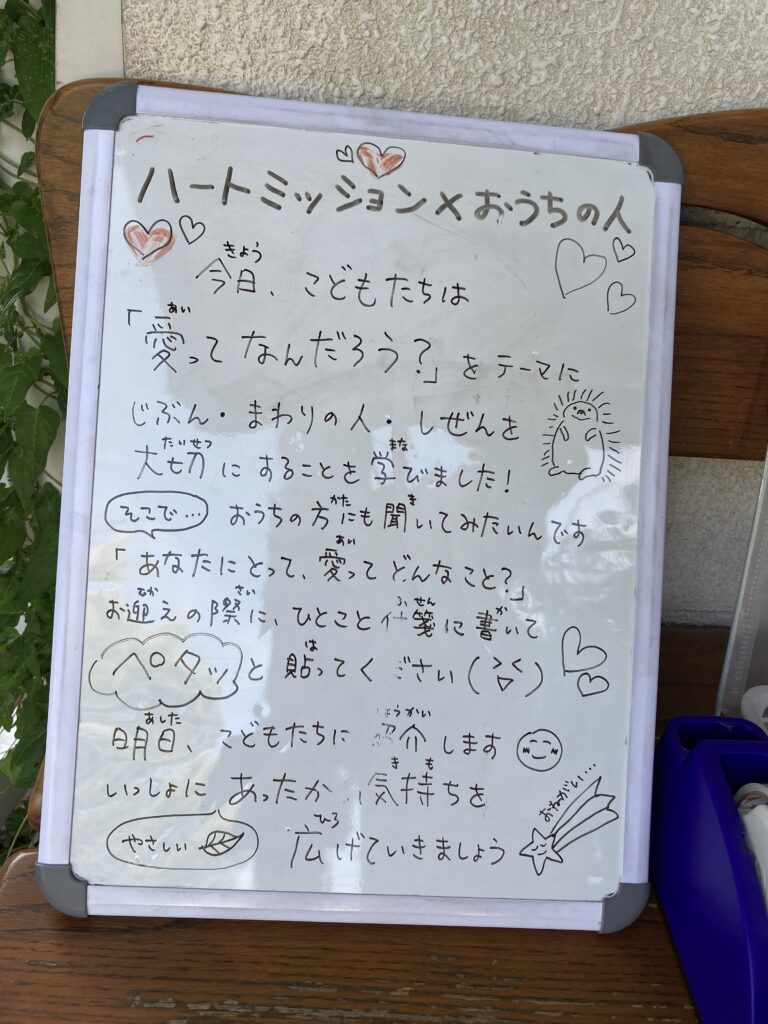 ハートミッション×おうちの人
今日、こどもたちは
「愛ってなんだろう?」をテーマに
じぶん・まわりの人・しぜんを
大切にすることを学びました!
そこで… おうちの方にも聞いてみたいんです
「あなたにとって、愛ってどんなこと?」
お迎えの際に、ひとこと付箋に書いて
ペタッと貼ってください
明日、こどもたちに紹介します
いっしょにあったか気持ちを
やさしい 広げていきましょう
おねがい…